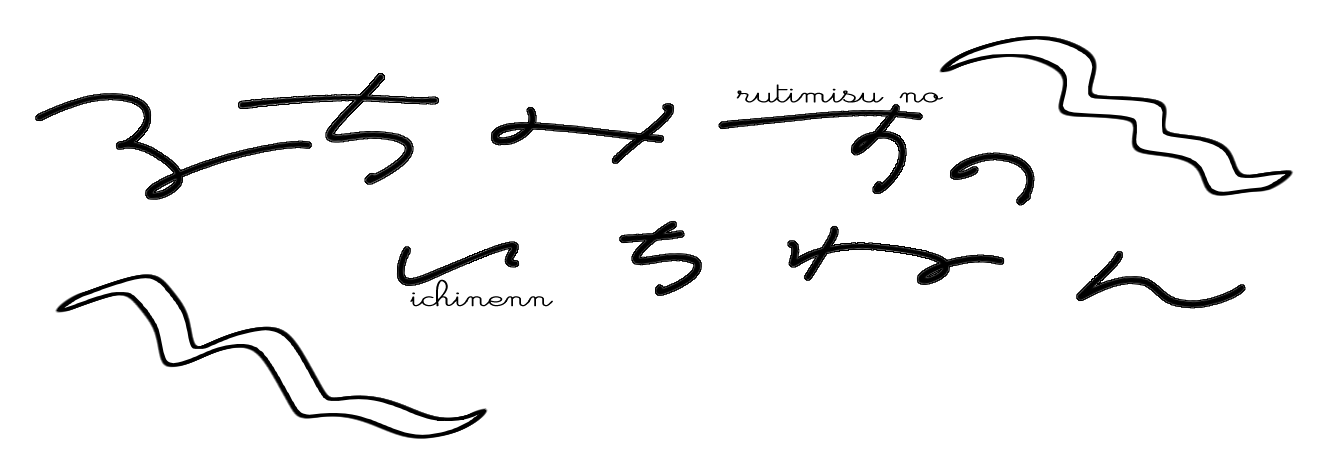 るちみすの
rutimisu no
いちねん
ichinenn